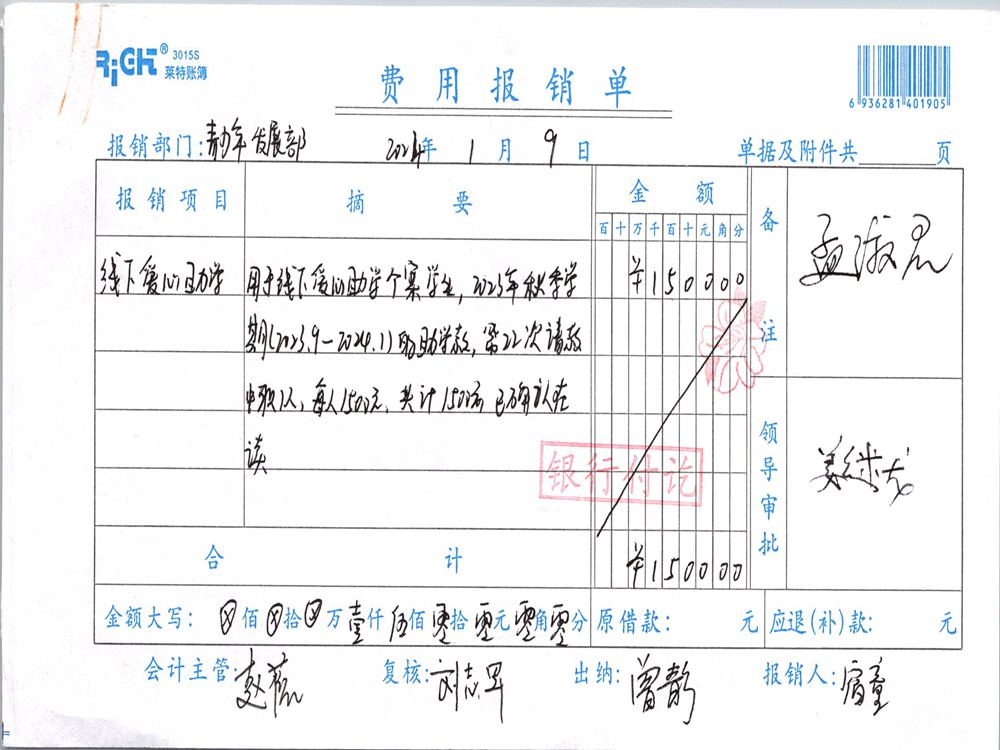 RiGHT® 3015S
莱特账簿
费用报销单
6 936281 401905
报销部门:青少年发展部 2024年 1月 9日 单据及附件共 页
报销项目 摘要 金额 备注
百十万千百十元角分
线下爱心助学 用于线下爱心助学个案学生,2023年秋季学 ¥150000
期(2023.9-2024.1)的助学款,第22次请款
申款1人,每人1500元,共计1500元已确认在
读
银行付讫
领导审批
合计 ¥150000
金额大写: ⊗佰⊗拾⊗万壹仟伍佰零拾零元零角零分 原借款: 元 应退(补)款: 元
会计主管: 复核:刘志军 出纳:曾静 报销人: